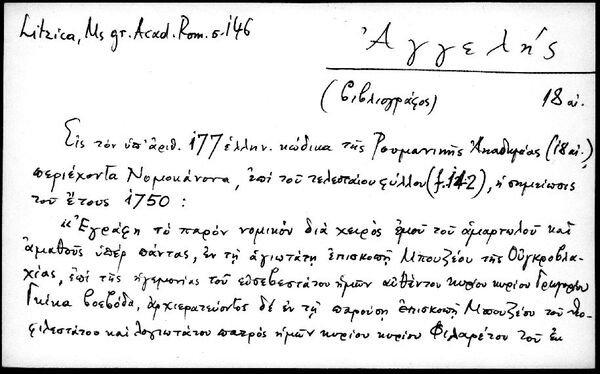 Litzica, Ms gr. Acad. Rom. σ. 146
Ἀγγελής
(βιβλιογράφος) 18 αἰ.
Εἰς τὸν ὑπ' ἀριθ. 177 ἑλλην. κώδικα τῆς Ρουμανικῆς Ἀκαδημίας (18 αἰ.)
περιέχοντα Νομοκάνονα, ἐπὶ τοῦ τελευταίου φύλλου (f. 142), ἡ σημείωσις
τοῦ ἔτους 1750 :
"Ἐγράφη τὸ παρὸν νομικὸν διὰ χειρὸς ἐμοῦ τοῦ ἁμαρτωλοῦ καὶ
ἀμαθοῦς ὑπὲρ πάντας, ἐν τῇ ἁγιωτάτῃ ἐπισκοπῇ Μπουζέου τῆς Οὑγκροβλα-
χίας, ἐπὶ τῆς ἡγεμονίας τοῦ εὐσεβεστάτου ἡμῶν αὐθέντου κυρίου κυρίου Γρηγορίου
Γκίκα βοεβόδα, ἀρχιερατεύοντος δὲ ἐν τῇ παρούσῃ ἐπισκοπῇ Μπουζέου τοῦ θεο-
φιλεστάτου καὶ λογιωτάτου πατρὸς ἡμῶν κυρίου κυρίου Φιλαρέτου τοῦ ἐκ